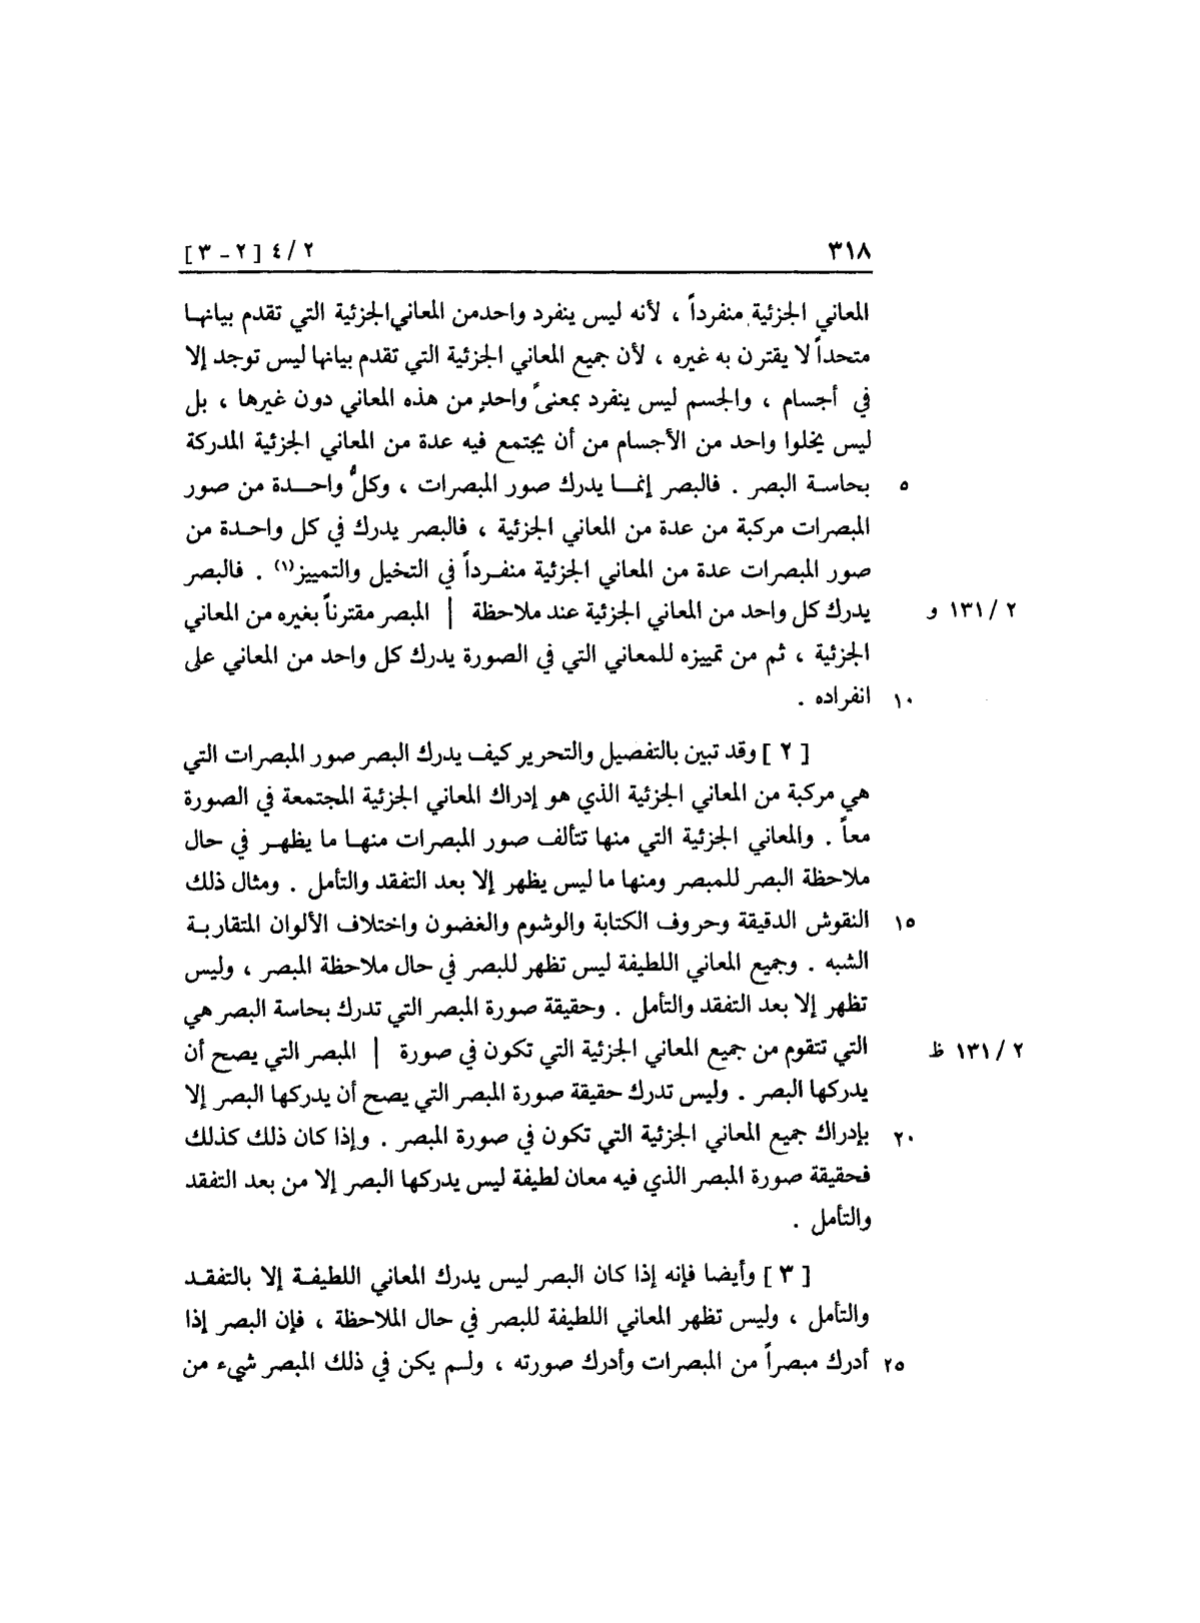 ٣١٨ ٢ / ٤ [ ٢ - ٣ ]
المعاني الجزئية منفرداً ، لأنه ليس ينفرد واحد من المعاني الجزئية التي تقدم بيانها
متحداً لا يقترن به غيره ، لأن جميع المعاني الجزئية التي تقدم بيانها ليس توجد إلا
في أجسام ، والجسم ليس ينفرد بمعنىً واحدٍ من هذه المعاني دون غيرها ، بل
ليس يخلوا واحد من الأجسام من أن يجتمع فيه عدة من المعاني الجزئية المدركة
٥ بحاسة البصر . فالبصر إنما يدرك صور المبصرات ، وكلُّ واحدة من صور
المبصرات مركبة من عدة من المعاني الجزئية ، فالبصر يدرك في كل واحدة من
صور المبصرات عدة من المعاني الجزئية منفرداً في التخيل والتمييز(١) . فالبصر
٢ / ١٣١ و يدرك كل واحد من المعاني الجزئية عند ملاحظة | المبصر مقترناً بغيره من المعاني
الجزئية ، ثم من تمييزه للمعاني التي في الصورة يدرك كل واحد من المعاني على
١٠ انفراده .
[ ٢ ] وقد تبين بالتفصيل والتحرير كيف يدرك البصر صور المبصرات التي
هي مركبة من المعاني الجزئية الذي هو إدراك المعاني الجزئية المجتمعة في الصورة
معاً . والمعاني الجزئية التي منها تتألف صور المبصرات منها ما يظهر في حال
ملاحظة البصر للمبصر ومنها ما ليس يظهر إلا بعد التفقد والتأمل . ومثال ذلك
١٥ النقوش الدقيقة وحروف الكتابة والوشوم والغضون واختلاف الألوان المتقاربة
الشبه . وجميع المعاني اللطيفة ليس تظهر للبصر في حال ملاحظة المبصر ، وليس
تظهر إلا بعد التفقد والتأمل . وحقيقة صورة المبصر التي تدرك بحاسة البصر هي
٢ / ١٣١ ظ التي تتقوم من جميع المعاني الجزئية التي تكون في صورة | المبصر التي يصح أن
يدركها البصر . وليس تدرك حقيقة صورة المبصر التي يصح أن يدركها البصر إلا
٢٠ بإدراك جميع المعاني الجزئية التي تكون في صورة المبصر . وإذا كان ذلك كذلك
فحقيقة صورة المبصر الذي فيه معان لطيفة ليس يدركها البصر إلا من بعد التفقد
والتأمل .
[ ٣ ] وأيضا فإنه إذا كان البصر ليس يدرك المعاني اللطيفة إلا بالتفقد
والتأمل ، وليس تظهر المعاني اللطيفة للبصر في حال الملاحظة ، فإن البصر إذا
٢٥ أدرك مبصراً من المبصرات وأدرك صورته ، ولم يكن في ذلك المبصر شيء من